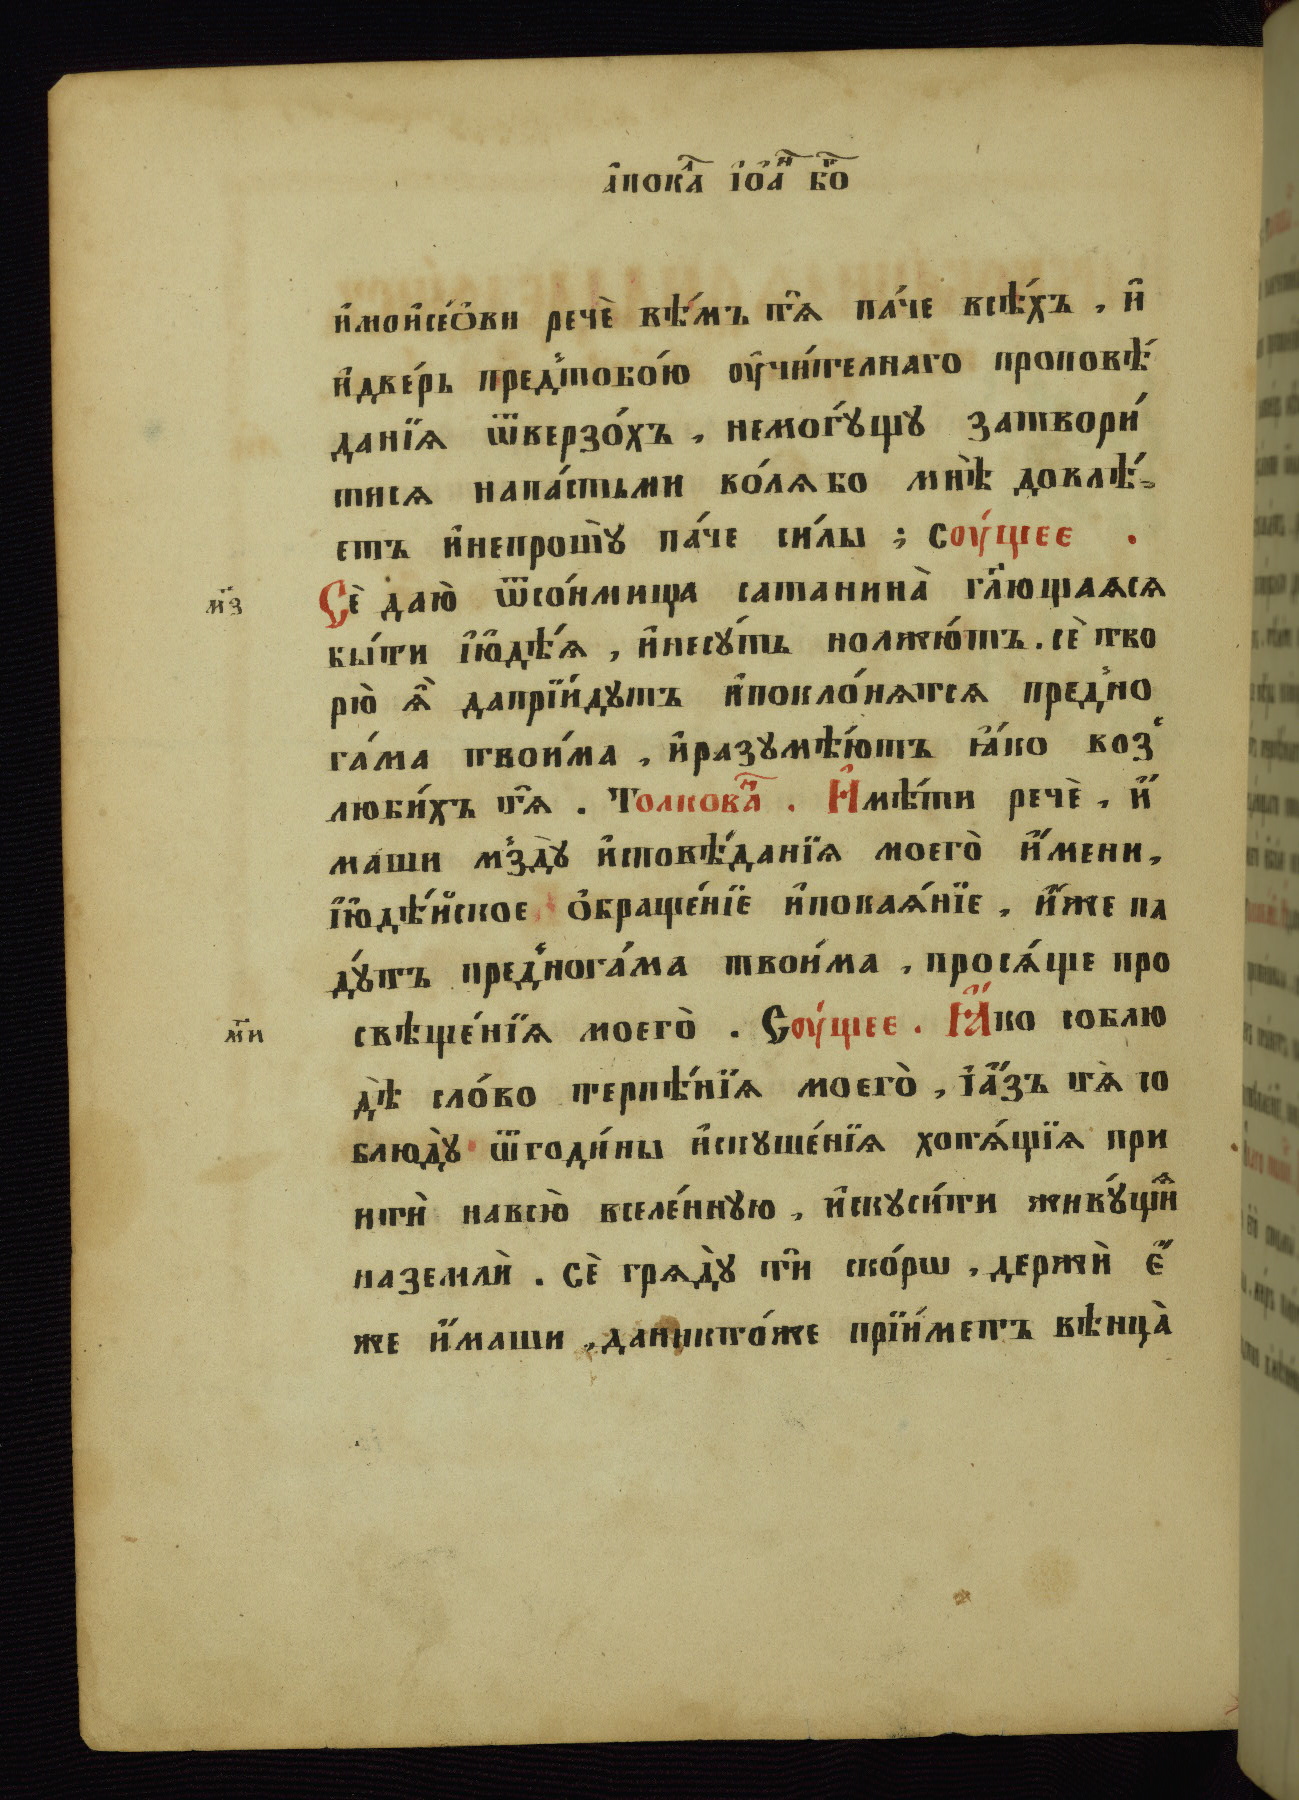 а҆пока́л і҆ѡа҆́н бо҃
и҆мойсе́ови речѐ вѣ́мъ тѧ̑ па́че всѣ́хъ , и҆
и҆две́рь пред̾тобо́ю ᲂу҆чи́телнаго проповѣ́
данїѧ ѿверзо́хъ , немогꙋ́щꙋ затвори́
тисѧ напа́стьми во́лѧбо мнѣ̀ довлѣ́-
етъ и҆непрошꙋ̀ па́че си́лы ; Сᲂу́щее .
м҃з
Сѐ даю̀ ѿсо́нмища сатанина̀ гл҃ющаѧсѧ
бы́ти і҆ю҆дѣ́ѧ , и҆несꙋ́ть нолжю́тъ . сѐ тво
рю̀ ѧ҆̀ дапрїи́дꙋтъ и҆покло́нѧтсѧ пред̾но
га́ма твои́ма , и҆разꙋмѣ́ютъ ꙗ҆́ко воз̾
люби́хъ тѧ̑ . Толкова́н . И҆мѣ́ти речѐ , и҆́
маши мз̾дꙋ̀ и҆сповѣ́данїѧ моегѡ̀ и҆́мени ,
і҆ю҆дѣ́йское ѻ҆браще́нїе и҆покаѧ́нїе , и҆́же па
дꙋ́тъ пред̾нога́ма твои́ма , просѧ́ще про
м҃и
свѣще́нїѧ моего̀ . Сᲂу́щее . Ꙗ҆́ко соблю
дѐ сло́во терпѣ́нїѧ моего̀ , і҆а҆́зъ тѧ̀ со
блюдꙋ̀ ѿгоди́ны и҆скꙋше́нїѧ хотѧ́щїѧ прі
итѝ навсю̀ вселе́ннꙋю , и҆скꙋси́ти живꙋ́щїѧ
наземлѝ . сѐ грѧдꙋ̀ тѝ ско́рѡ , держѝ є҆́
же и҆́маши , даникто́же прїи́метъ вѣнца̀